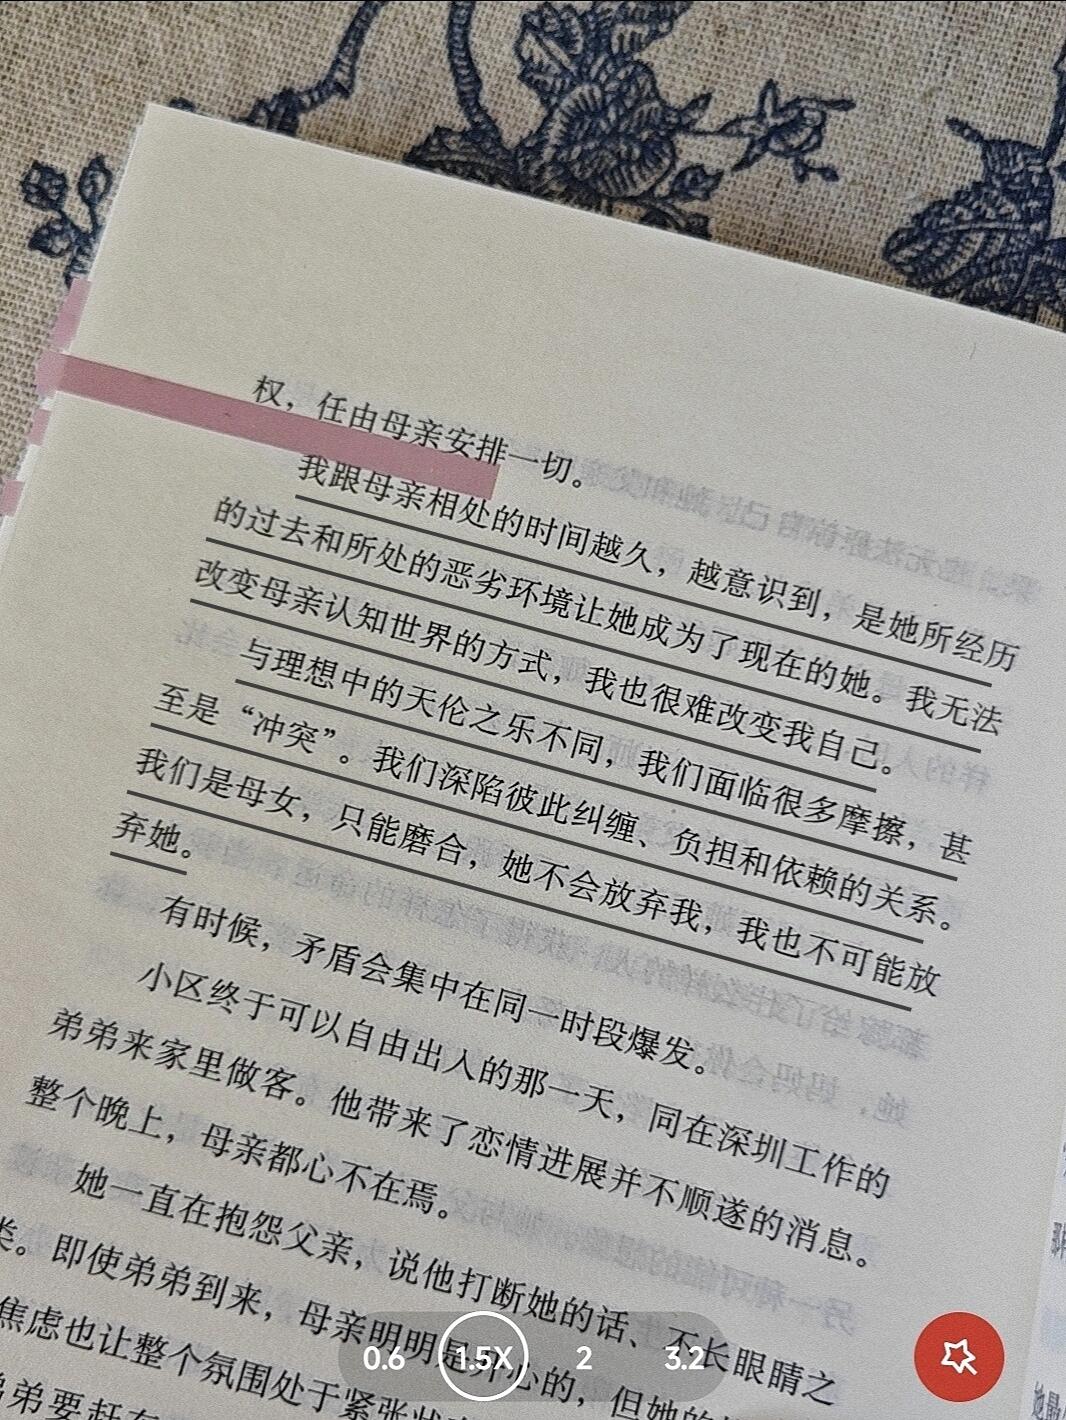 权，任由母亲安排一切。
我跟母亲相处的时间越久，越意识到，是她所经历
的过去和所处的恶劣环境让她成为了现在的她。我无法
改变母亲认知世界的方式，我也很难改变我自己。
与理想中的天伦之乐不同，我们面临很多摩擦，甚
至是“冲突”。我们深陷彼此纠缠、负担和依赖的关系。
我们是母女，只能磨合，她不会放弃我，我也不可能放
弃她。
有时候，矛盾会集中在同一时段爆发。
小区终于可以自由出入的那一天，同在深圳工作的
弟弟来家里做客。他带来了恋情进展并不顺遂的消息。
整个晚上，母亲都心不在焉。
她一直在抱怨父亲，说他打断她的话、不长眼睛之
类。即使弟弟到来，母亲明明是开心的，但她的
焦虑也让整个氛围处于紧张状
弟要赶在
0.6 1.5X 2 3.2